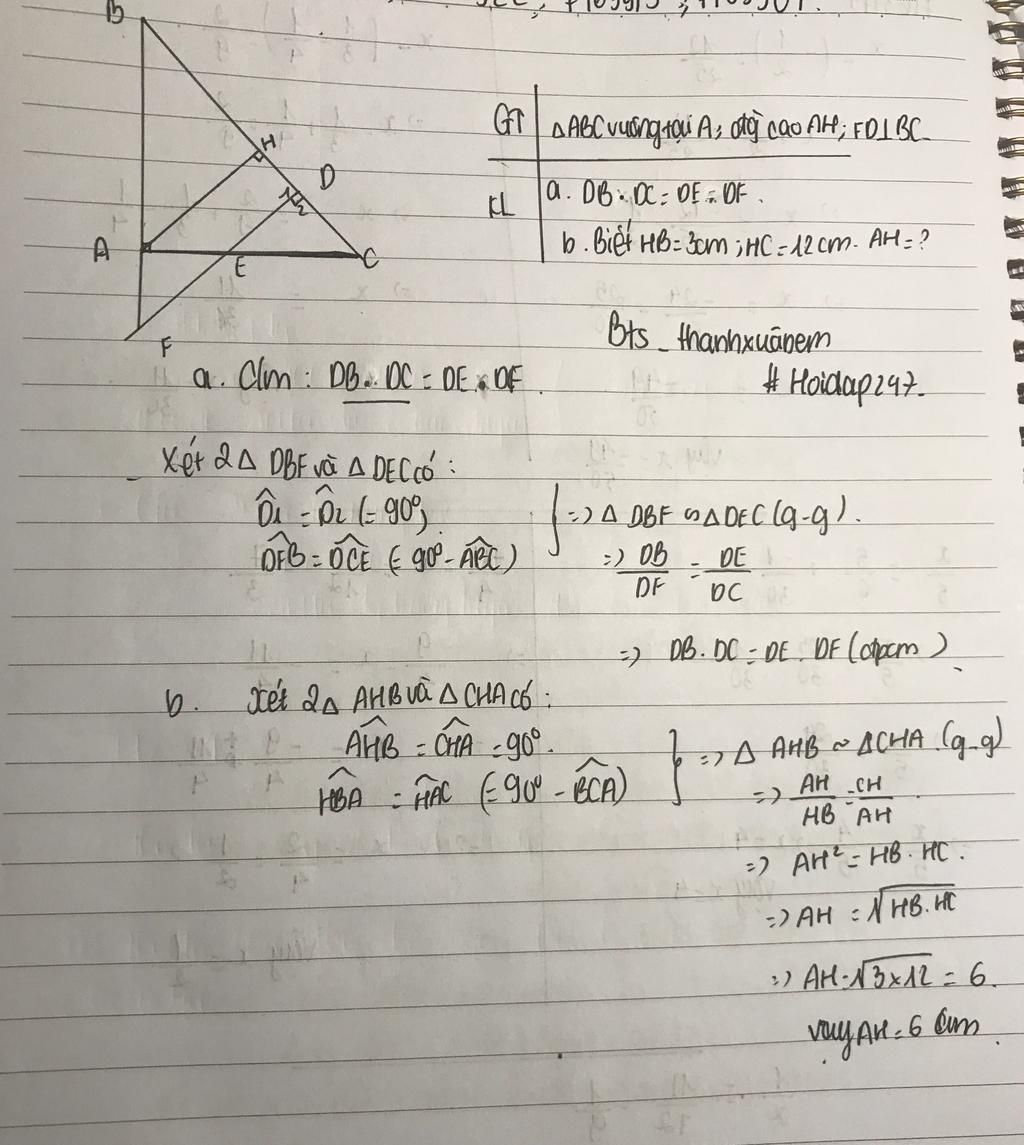 B
H
D
1
2
A
E
C
F
GT ΔABC vuông tại A; đg cao AH; FD⊥BC.
KL a. DB. DC = DE. DF.
b. Biết HB = 3cm; HC = 12 cm. AH = ?
Bts_thanhxuâncem
# Hoidap247.
a. C/m: DB. DC = DE. DF.
Xét 2Δ DBF và Δ DEC có:
D̂1 = D̂2 (= 90°)
DFB = DCE (= 90° - ABC)
} => Δ DBF ∽ Δ DEC (g-g).
=> DB/DF = DE/DC
=> DB. DC = DE. DF (đpcm)
b. Xét 2Δ AHB và Δ CHA có:
AHB = CHA = 90°.
HBA = HAC (= 90° - BCA)
} => Δ AHB ~ ΔCHA. (g-g)
=> AH/HB = CH/AH
=> AH² = HB. HC.
=> AH = √HB. HC
=> AH = √3x12 = 6.
vậy AH = 6 cm.